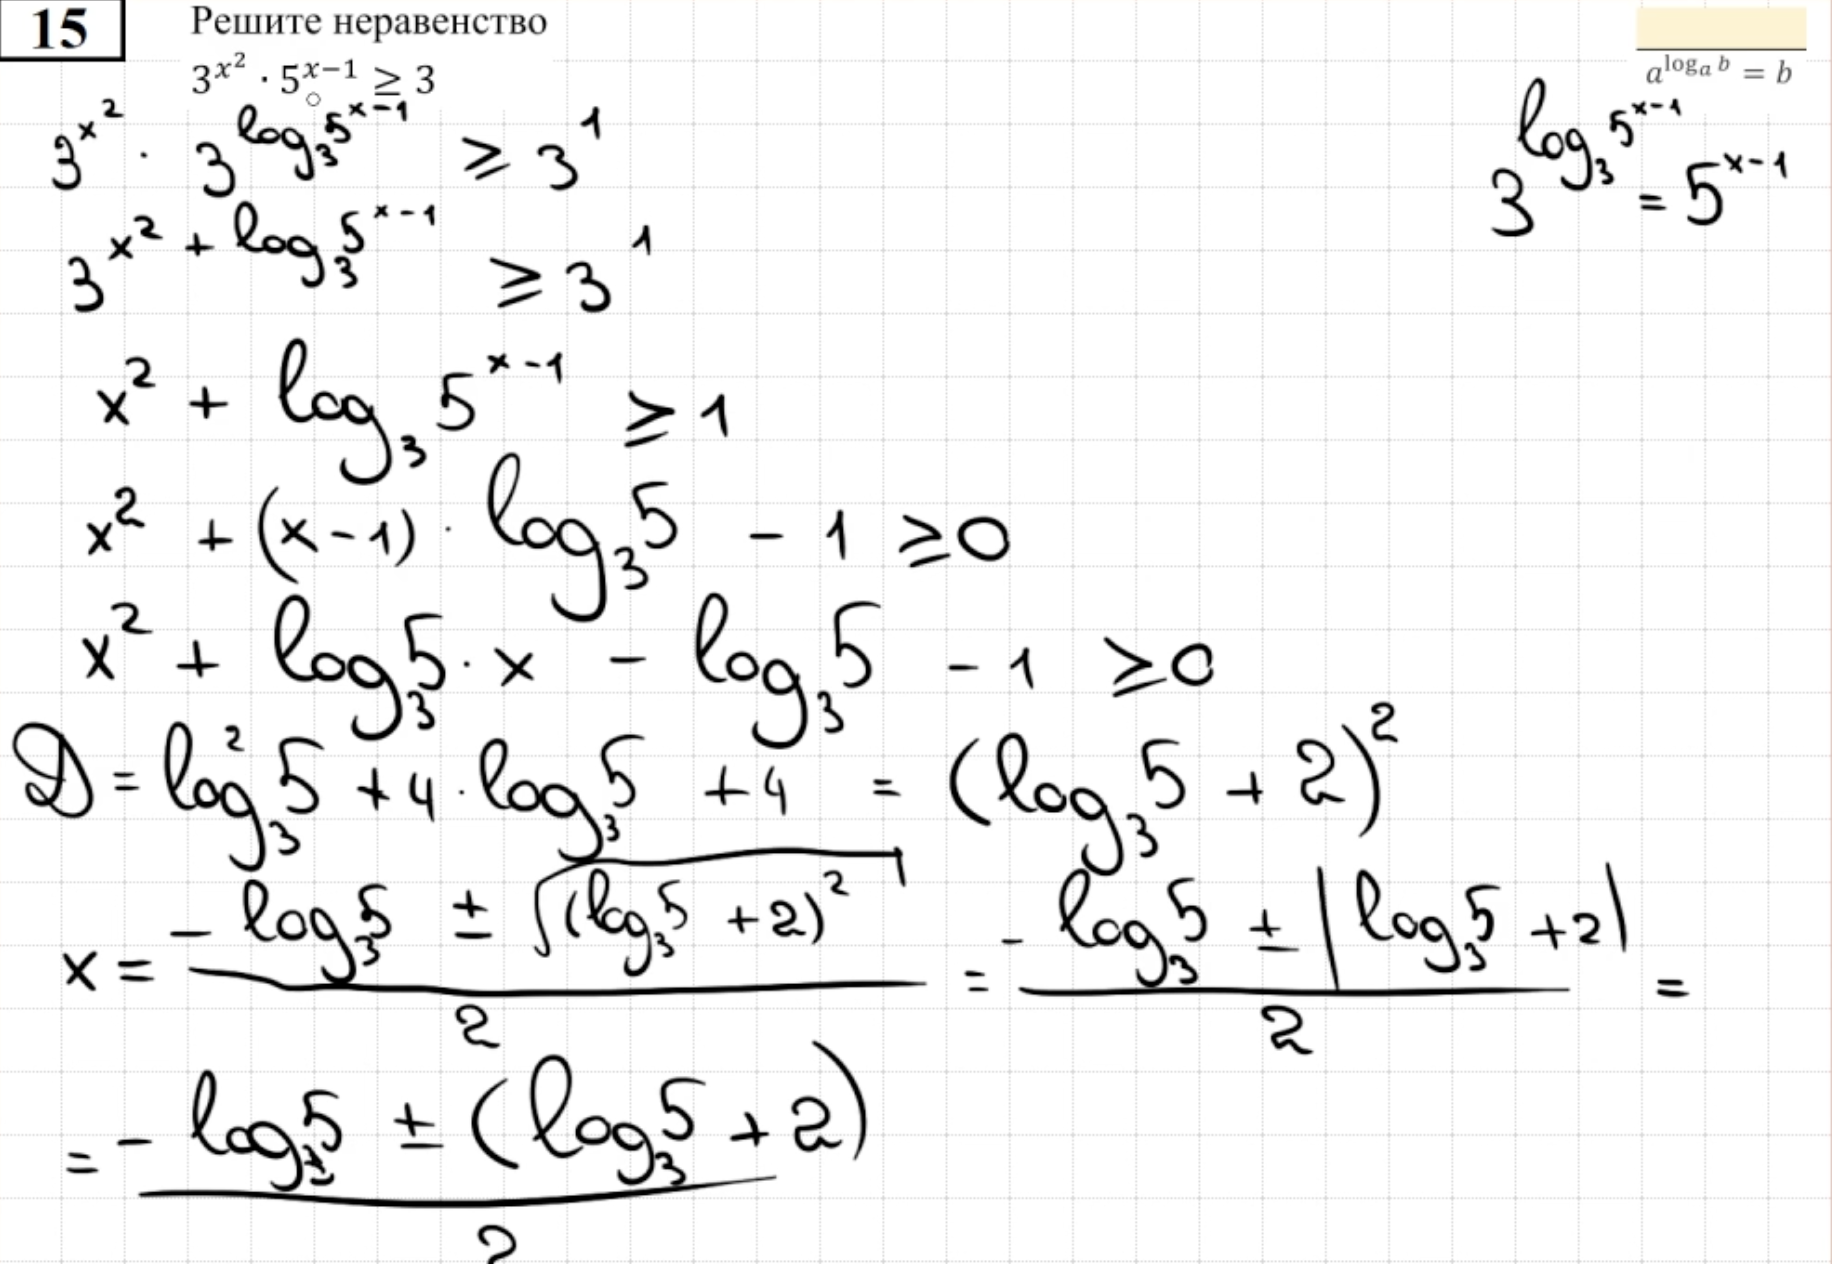 15
Решите неравенство
3^{x^2} · 5^{x−1} ≥ 3
a^{log_a b} = b
3^{x^2} · 3^{log_3 5^{x-1}} ≥ 3^1
3^{log_3 5^{x-1}} = 5^{x-1}
3^{x^2 + log_3 5^{x-1}} ≥ 3^1
x^2 + log_3 5^{x-1} ≥ 1
x^2 + (x-1) · log_3 5 - 1 ≥ 0
x^2 + log_3 5 · x - log_3 5 - 1 ≥ 0
D = log_3^2 5 + 4 · log_3 5 + 4 = (log_3 5 + 2)^2
x = (-log_3 5 ± √((log_3 5 + 2)^2)) / 2 = (-log_3 5 ± |log_3 5 + 2|) / 2 =
= (-log_3 5 ± (log_3 5 + 2)) / 2